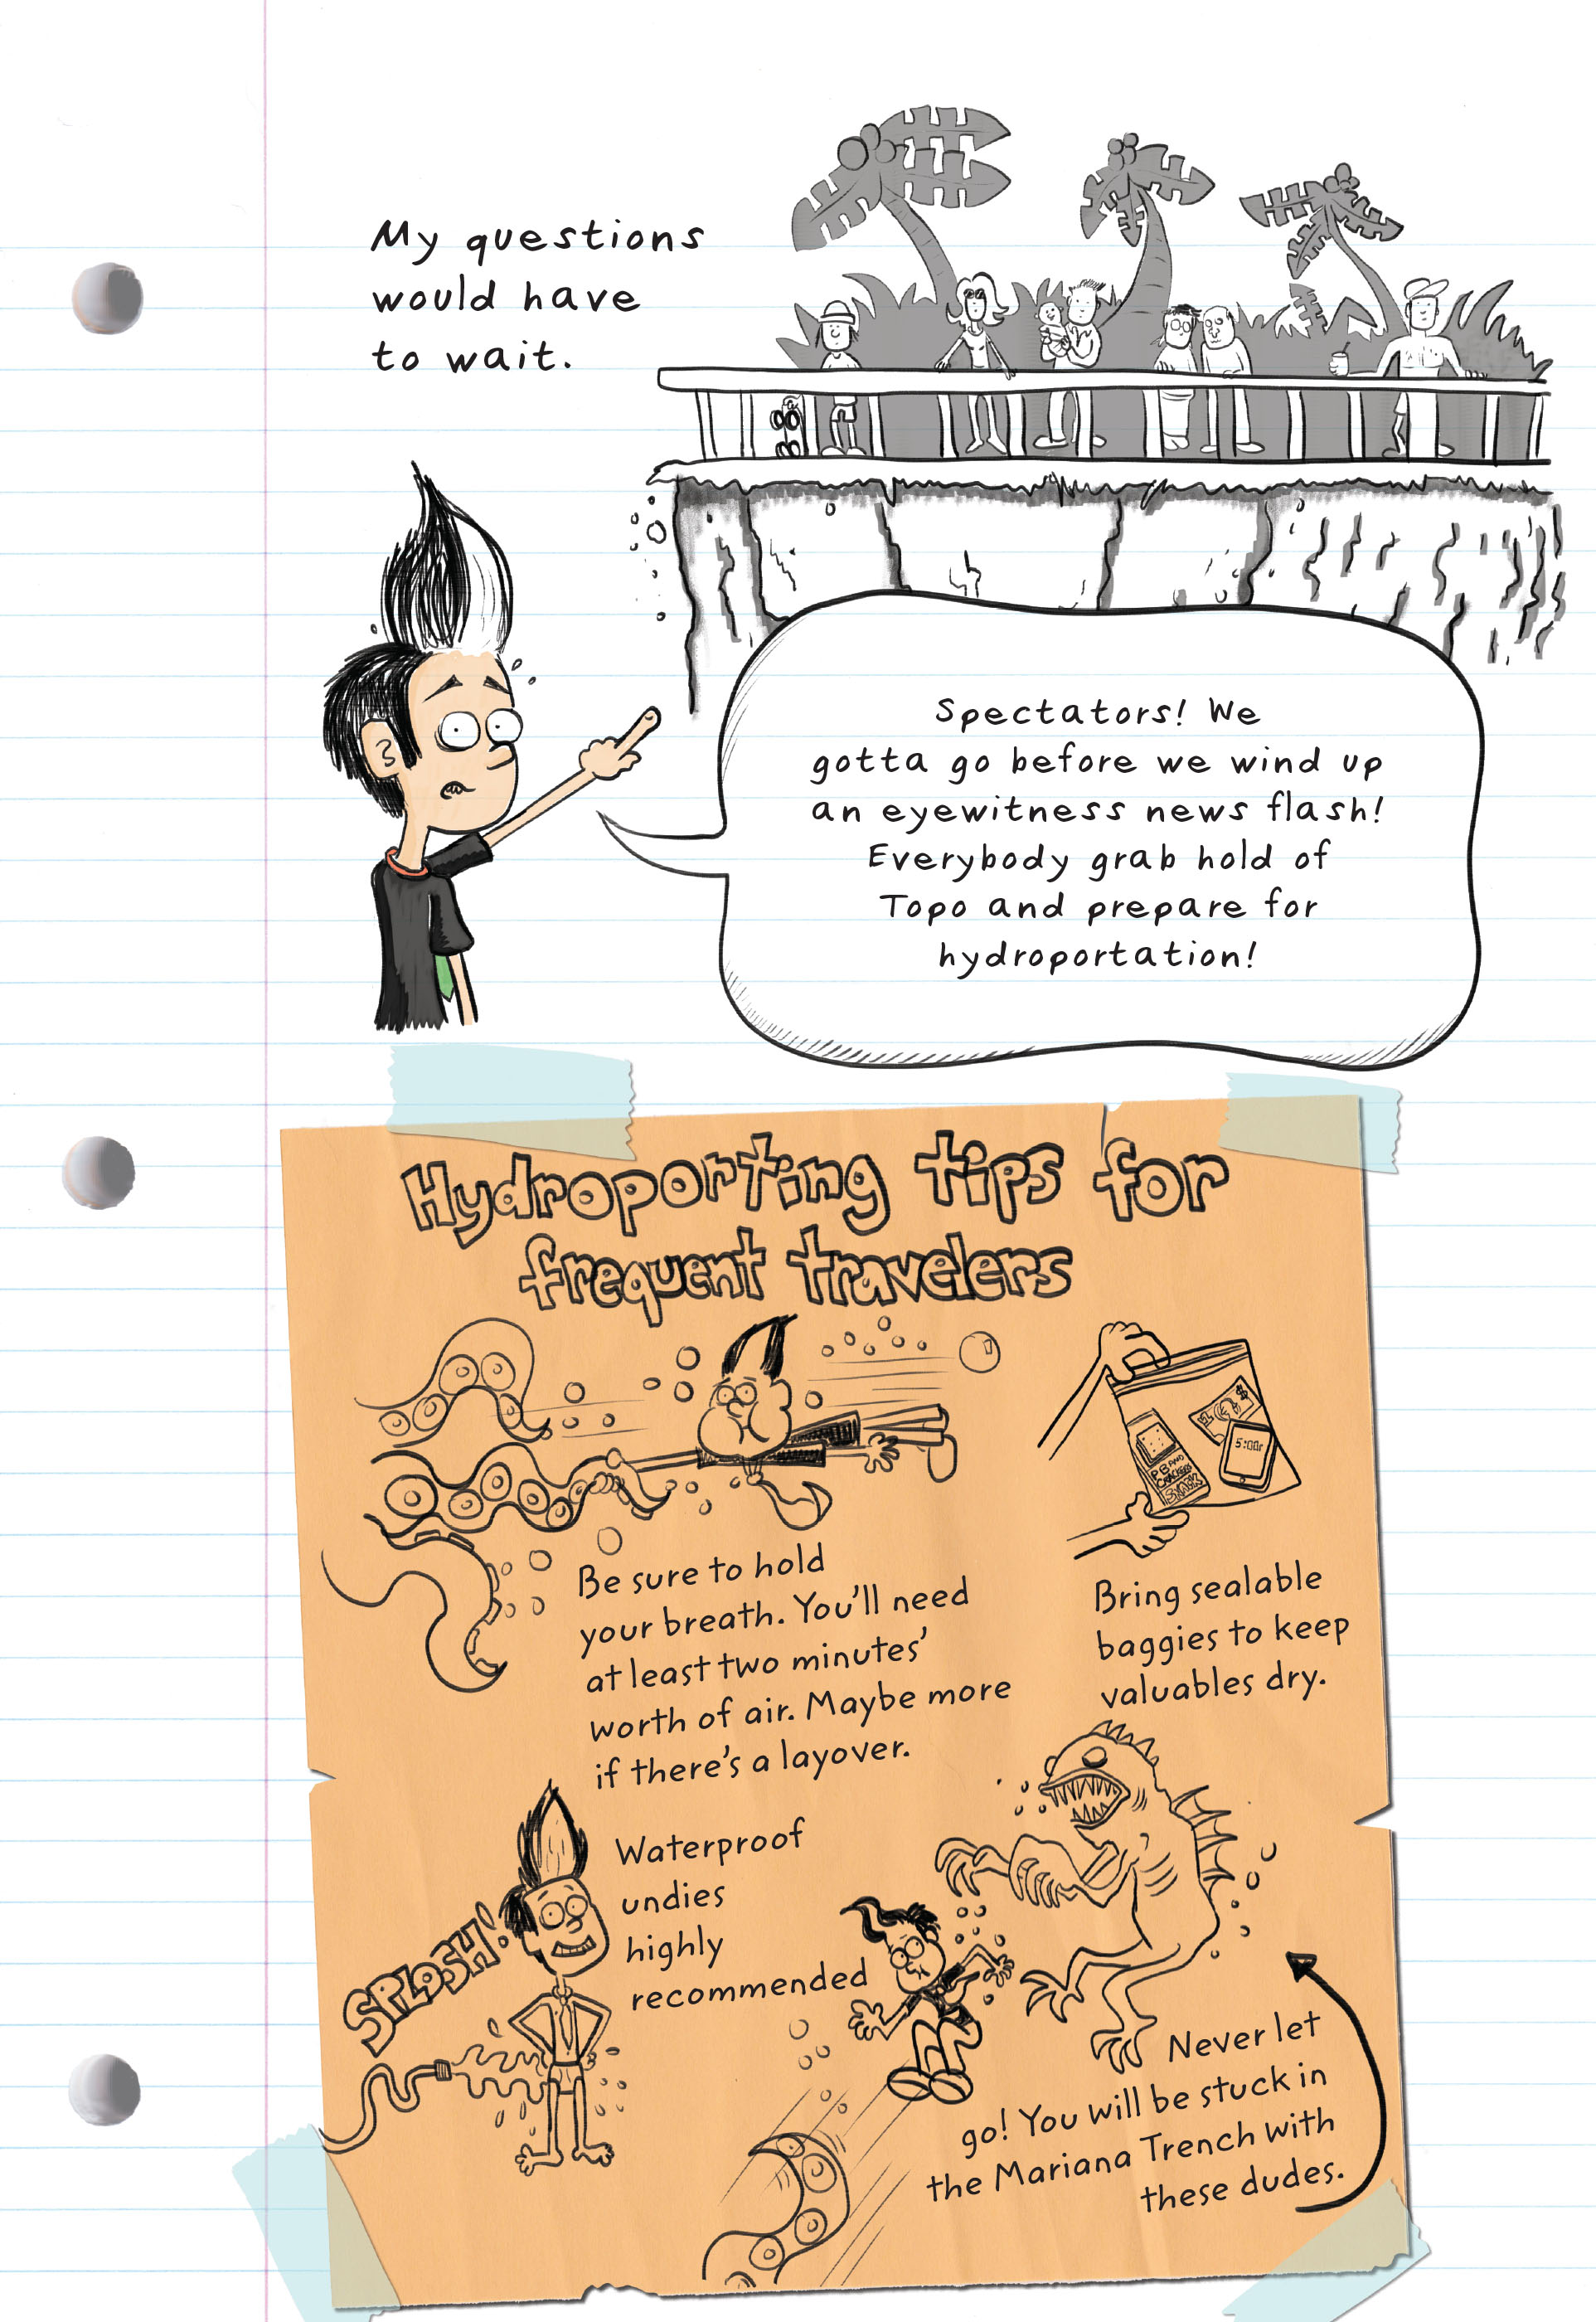 My questions
would have
to wait.
Spectators! We
gotta go before we wind up
an eyewitness news flash!
Everybody grab hold of
Topo and prepare for
hydroportation!
Hydroporting tips for
frequent travelers
Be sure to hold
your breath. You'll need
at least two minutes'
worth of air. Maybe more
if there's a layover.
$1
$
5:00
PB AND
CRACKERS
SNACK
Bring sealable
baggies to keep
valuables dry.
SPLOSH!
Waterproof
undies
highly
recommended
Never let
go! You will be stuck in
the Mariana Trench with
these dudes.